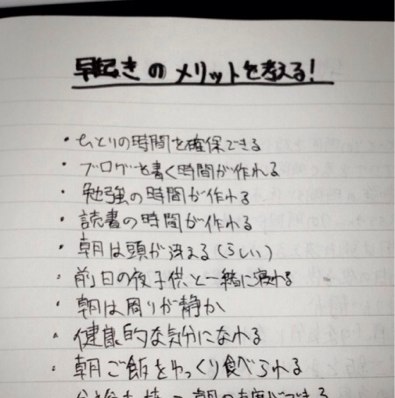 早起きのメリットを考える！
・ひとりの時間を確保できる
・ブログを書く時間が作れる
・勉強の時間が作れる
・読書の時間が作れる
・朝は頭が冴まる（らしい）
・前日の夜子供と一緒に寝れる
・朝は周りが静か
・健康的な気分になれる
・朝ご飯をゆっくり食べられる